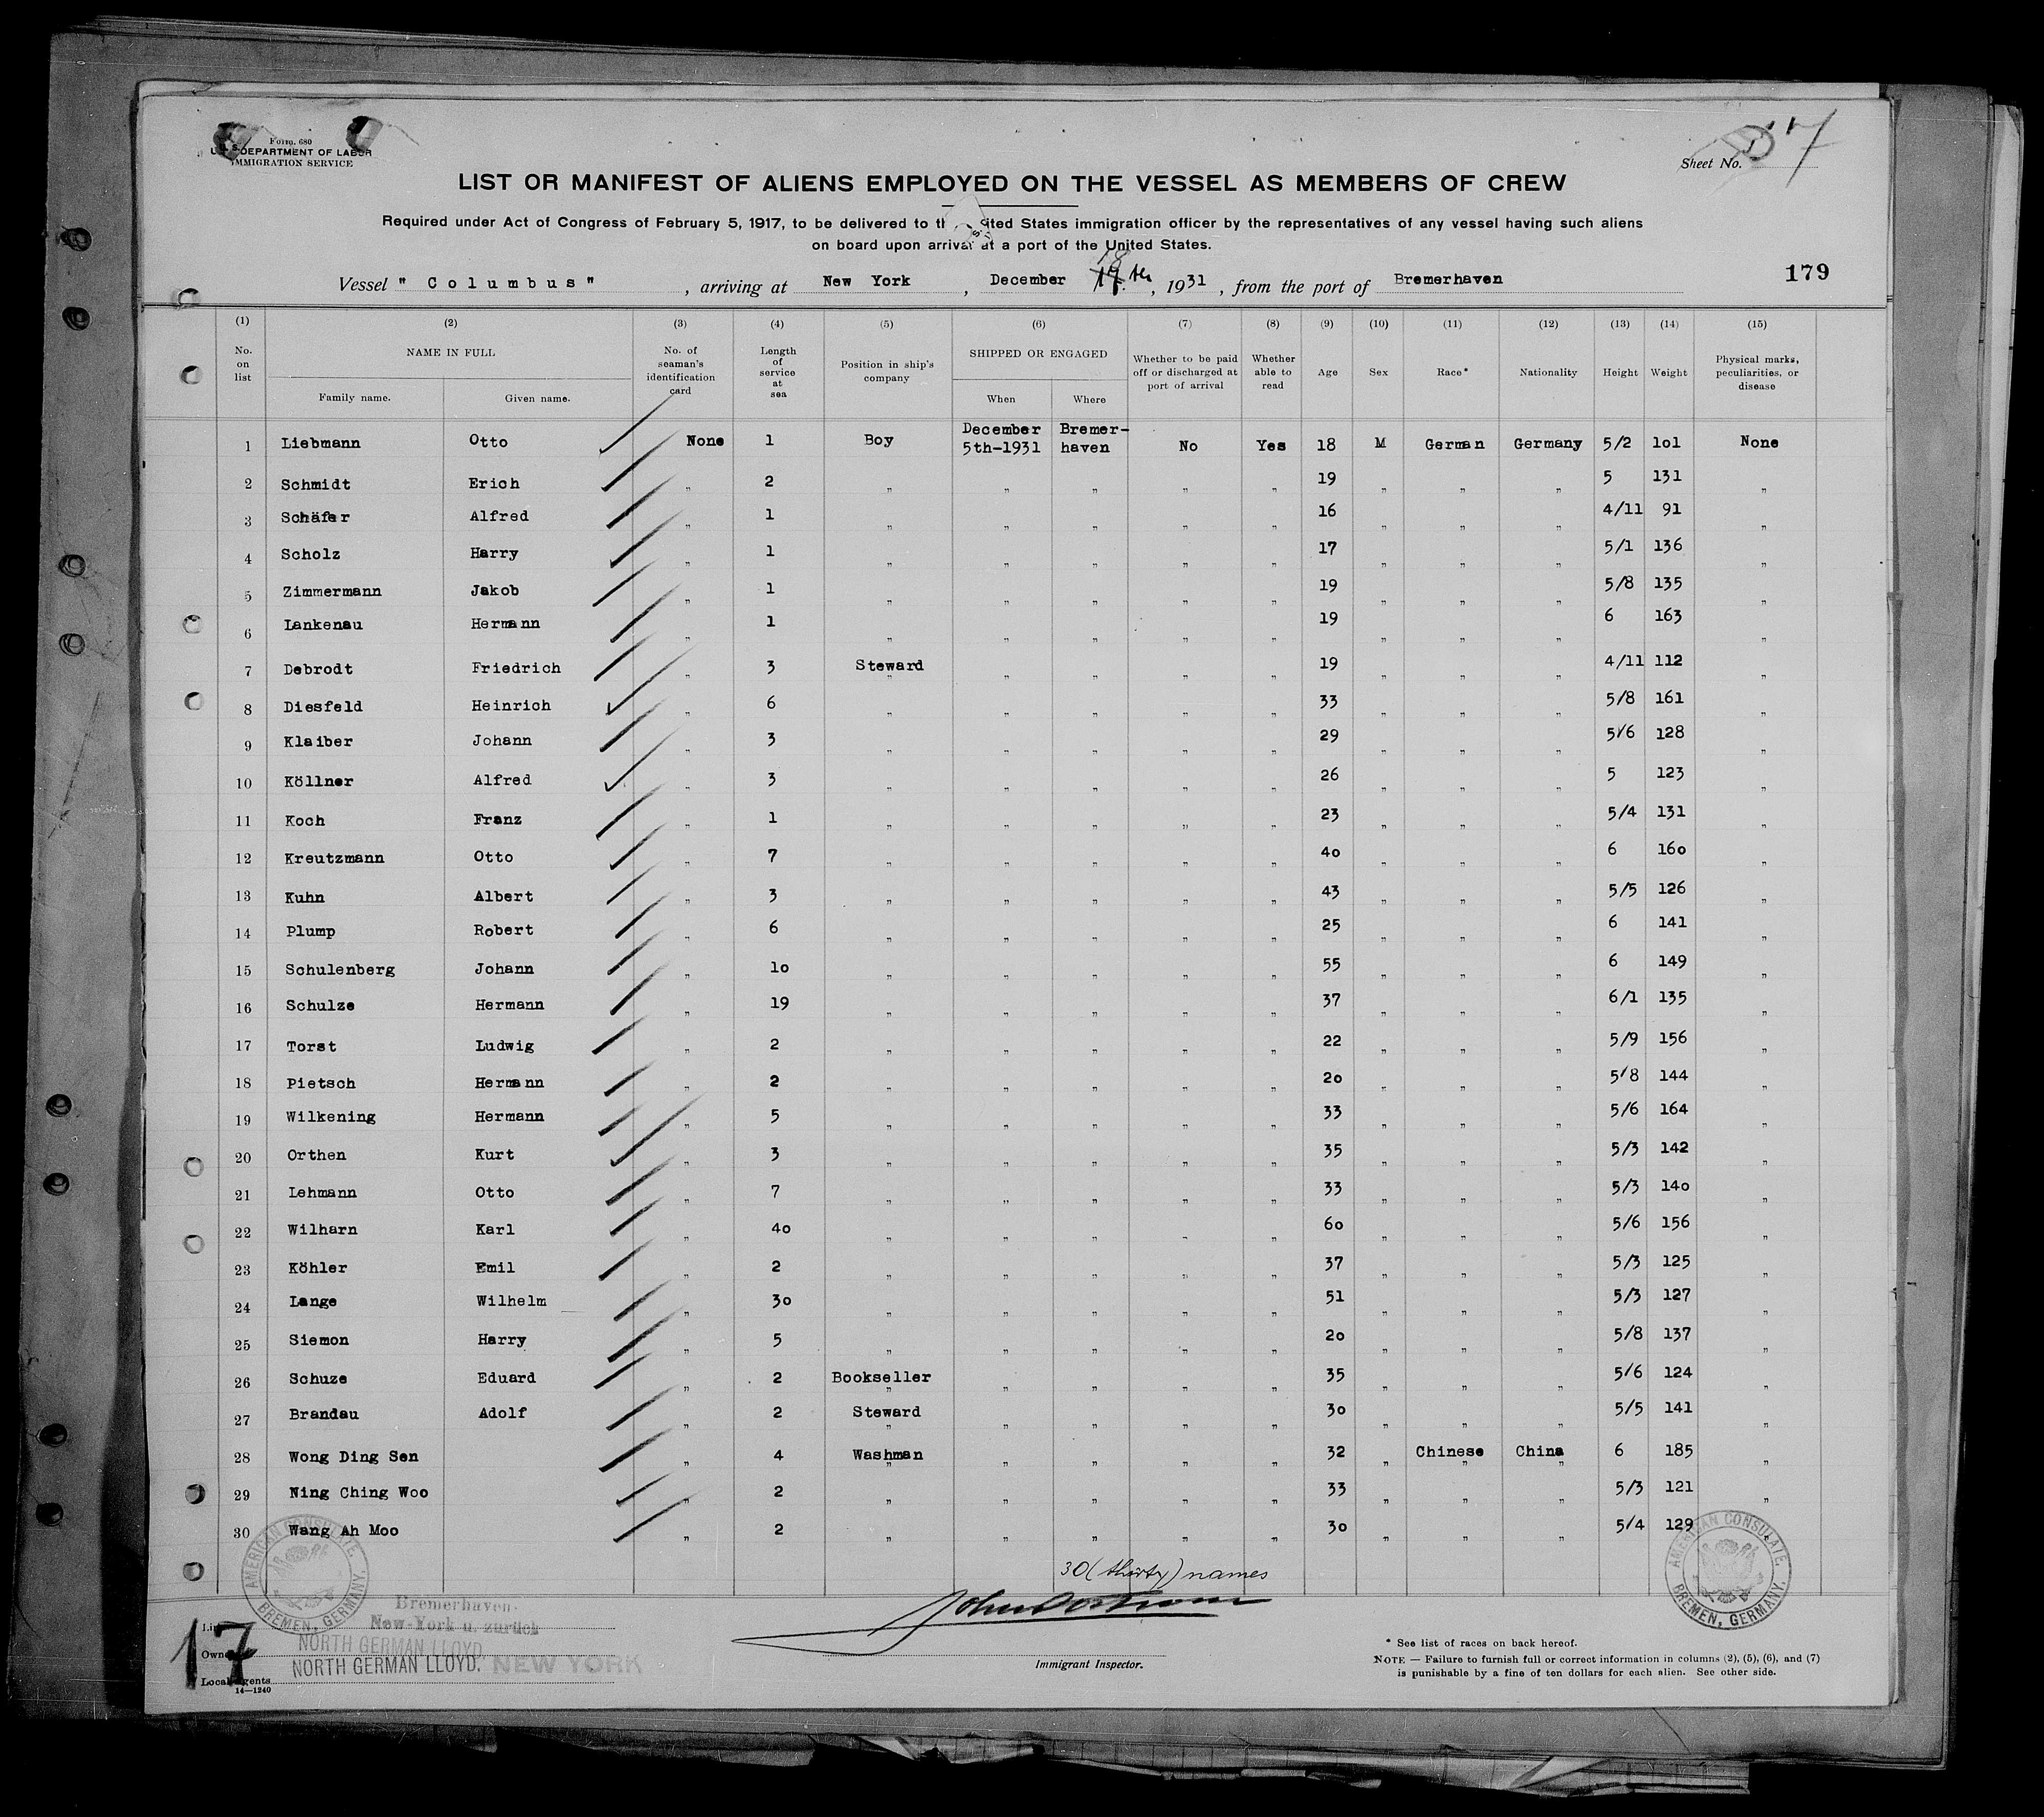 Form 680
U.S. DEPARTMENT OF LABOR
IMMIGRATION SERVICE
Sheet No. 17
LIST OR MANIFEST OF ALIENS EMPLOYED ON THE VESSEL AS MEMBERS OF CREW
Required under Act of Congress of February 5, 1917, to be delivered to the United States immigration officer by the representatives of any vessel having such aliens
on board upon arrival at a port of the United States.
18
Vessel " Columbus " , arriving at New York , December 17th , 1931 , from the port of Bremerhaven
179
(1) (2) (3) (4) (5) (6) (7) (8) (9) (10) (11) (12) (13) (14) (15)
No. on list NAME IN FULL Family name. Given name. No. of seaman's identification card Length of service at sea Position in ship's company SHIPPED OR ENGAGED When Where Whether to be paid off or discharged at port of arrival Whether able to read Age Sex Race* Nationality Height Weight Physical marks, peculiarities, or disease
1 Liebmann Otto None 1 Boy December 5th-1931 Bremer-haven No Yes 18 M German Germany 5/2 101 None
2 Schmidt Erich " 2 " " " " " 19 " " " 5 131 "
3 Schäfer Alfred " 1 " " " " " 16 " " " 4/11 91 "
4 Scholz Harry " 1 " " " " " 17 " " " 5/1 136 "
5 Zimmermann Jakob " 1 " " " " " 19 " " " 5/8 135 "
6 Lankenau Hermann " 1 " " " " " 19 " " " 6 163 "
7 Debrodt Friedrich " 3 Steward " " " " 19 " " " 4/11 112 "
8 Diesfeld Heinrich " 6 " " " " " 33 " " " 5/8 161 "
9 Klaiber Johann " 3 " " " " " 29 " " " 5/6 128 "
10 Köllner Alfred " 3 " " " " " 26 " " " 5 123 "
11 Koch Franz " 1 " " " " " 23 " " " 5/4 131 "
12 Kreutzmann Otto " 7 " " " " " 40 " " " 6 160 "
13 Kuhn Albert " 3 " " " " " 43 " " " 5/5 126 "
14 Plump Robert " 6 " " " " " 25 " " " 6 141 "
15 Schulenberg Johann " 10 " " " " " 55 " " " 6 149 "
16 Schulze Hermann " 19 " " " " " 37 " " " 6/1 135 "
17 Torst Ludwig " 2 " " " " " 22 " " " 5/9 156 "
18 Pietsch Hermann " 2 " " " " " 20 " " " 5/8 144 "
19 Wilkening Hermann " 5 " " " " " 33 " " " 5/6 164 "
20 Orthen Kurt " 3 " " " " " 35 " " " 5/3 142 "
21 Lehmann Otto " 7 " " " " " 33 " " " 5/3 140 "
22 Wilharn Karl " 40 " " " " " 60 " " " 5/6 156 "
23 Köhler Emil " 2 " " " " " 37 " " " 5/3 125 "
24 Lange Wilhelm " 30 " " " " " 51 " " " 5/3 127 "
25 Siemon Harry " 5 " " " " " 20 " " " 5/8 137 "
26 Schuze Eduard " 2 Bookseller " " " " 35 " " " 5/6 124 "
27 Brandau Adolf " 2 Steward " " " " 30 " " " 5/5 141 "
28 Wong Ding Sen " 4 Washman " " " " 32 " Chinese China 6 185 "
29 Ning Ching Woo " 2 " " " " " 33 " " " 5/3 121 "
30 Wang Ah Moo " 2 " " " " " 30 " " " 5/4 129
30 (thirty) names
AMERICAN CONSULATE. BREMEN, GERMANY.
AMERICAN CONSULATE. BREMEN, GERMANY.
Bremerhaven-
New-York u. zurück
17
Owner NORTH GERMAN LLOYD
Local Agents NORTH GERMAN LLOYD. NEW YORK
14—1240
Immigrant Inspector.
* See list of races on back hereof.
NOTE — Failure to furnish full or correct information in columns (2), (5), (6), and (7)
is punishable by a fine of ten dollars for each alien. See other side.